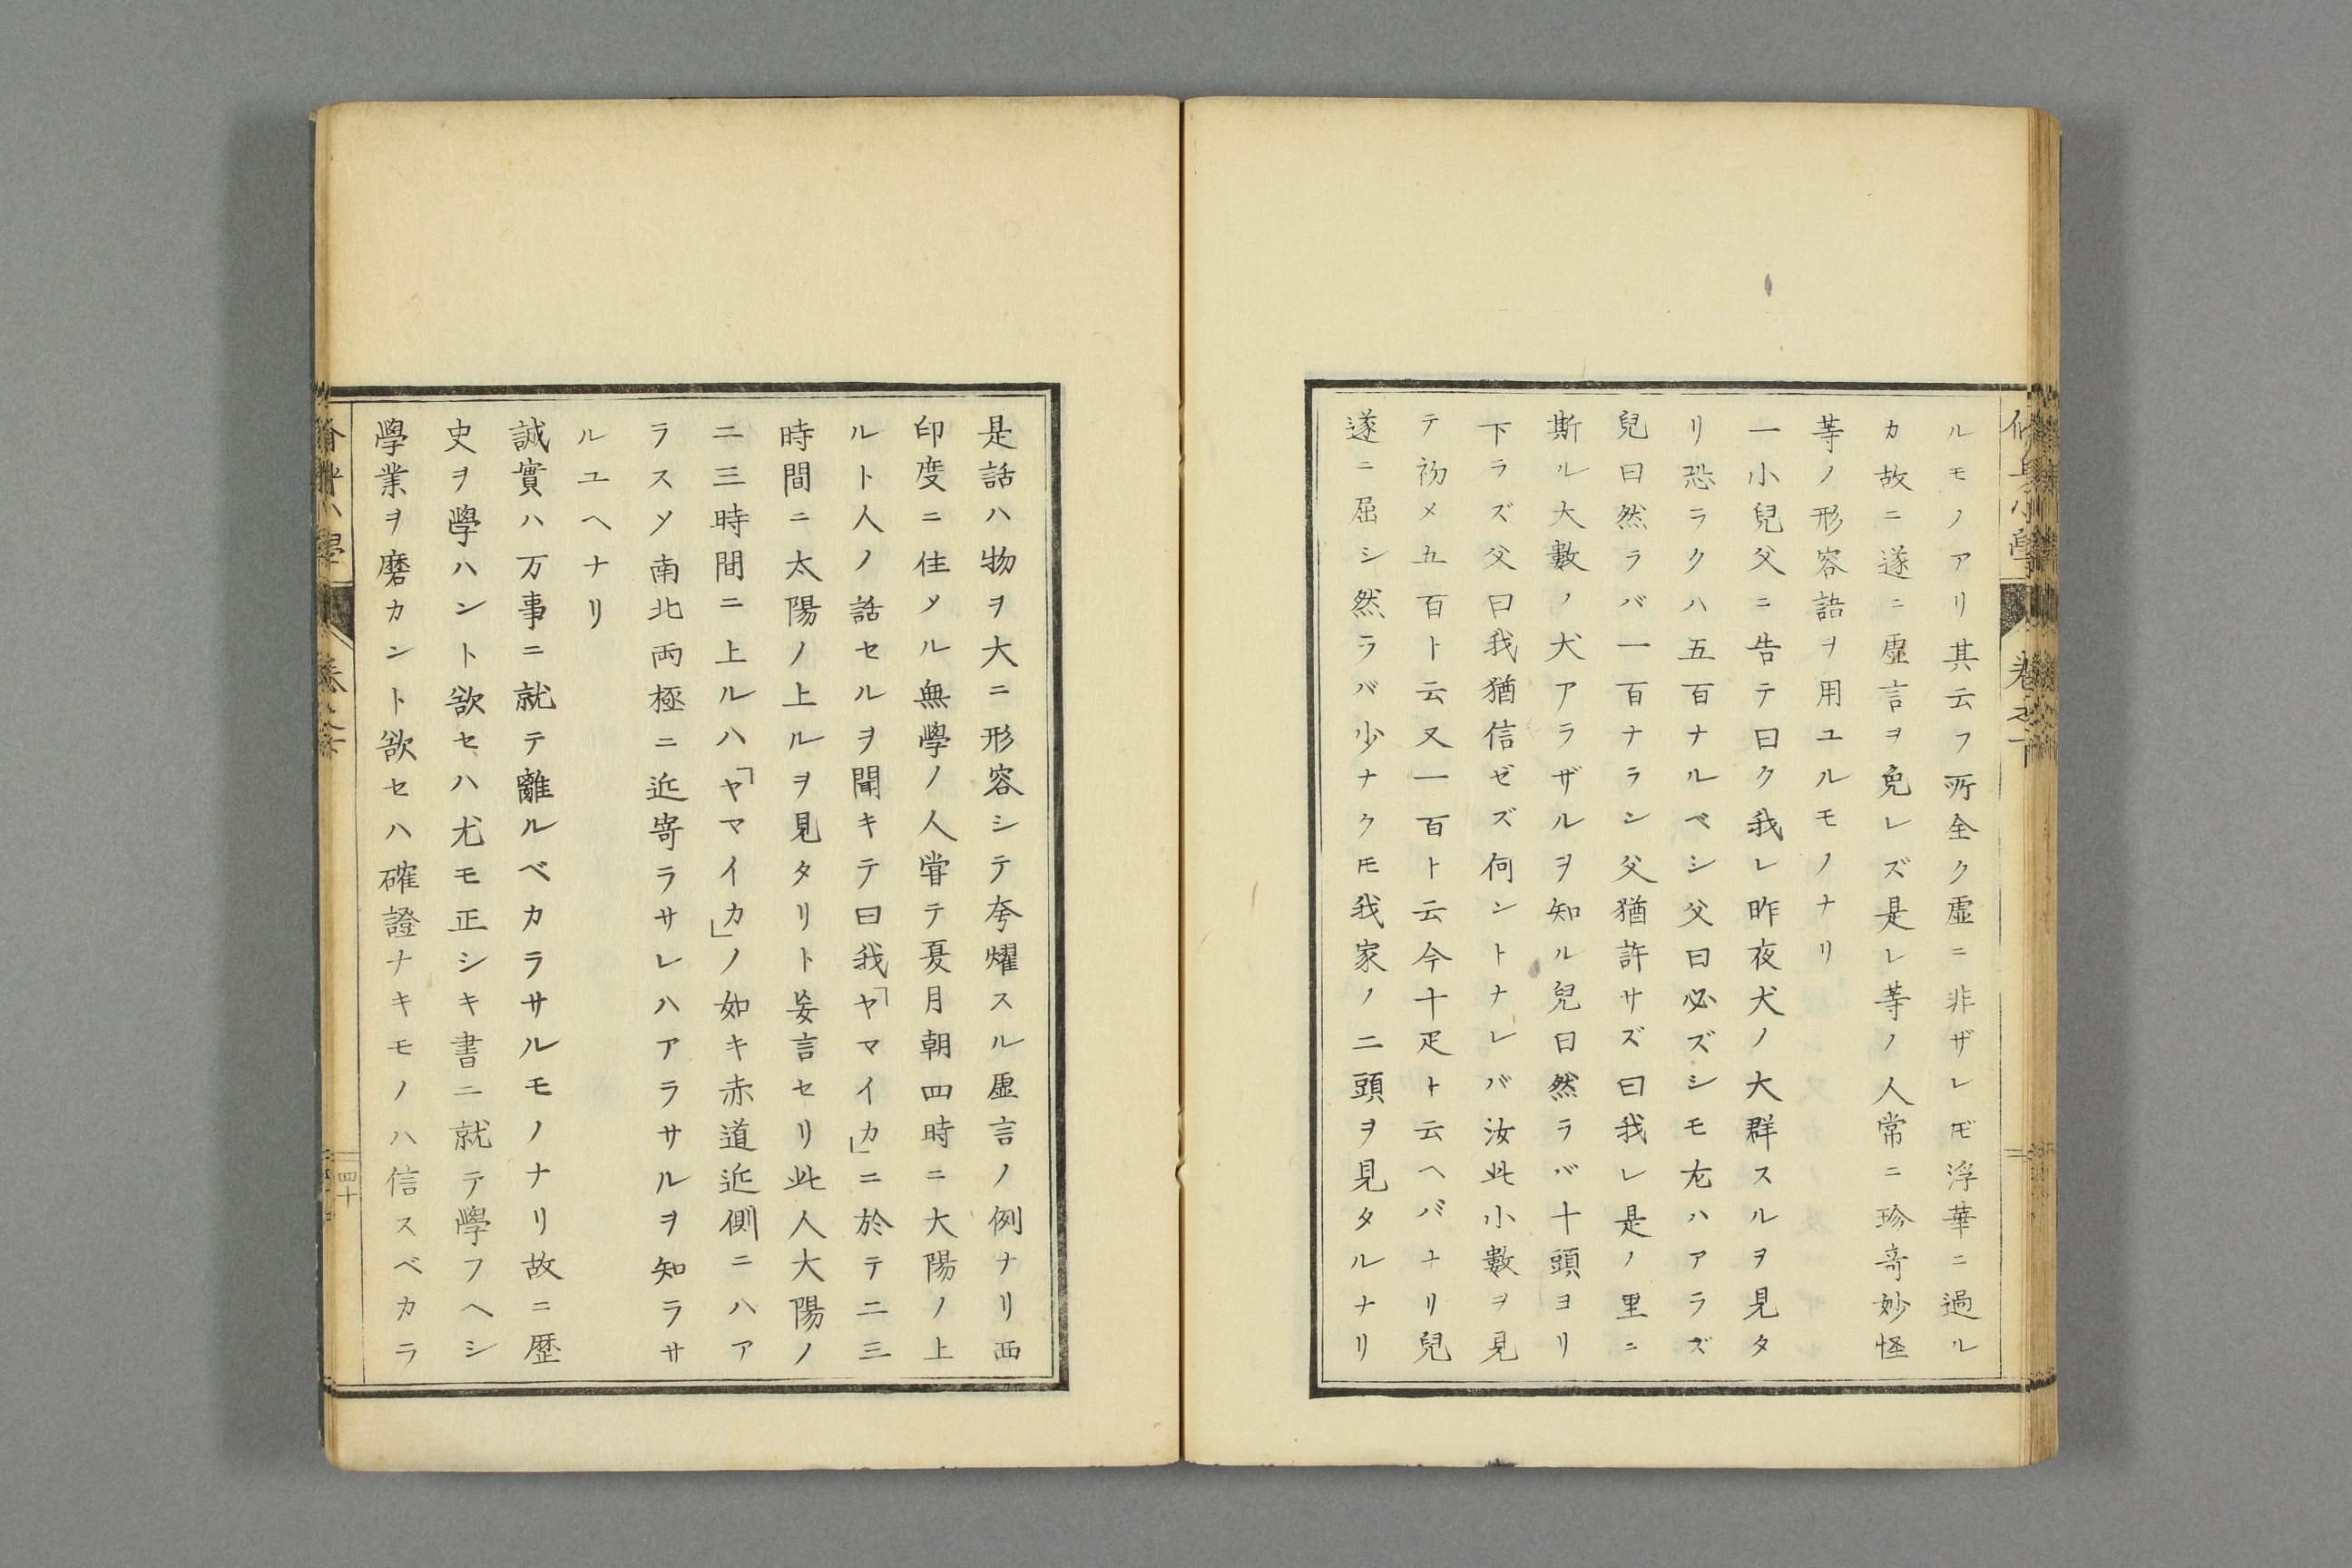 ルモノアリ其云フ所全ク虚ニ非ザレ𪜈浮華ニ過ル
カ故ニ遂ニ虚言ヲ免レズ是レ等ノ人常ニ珍奇妙怪
等ノ形容語ヲ用ユルモノナリ
一小兒父ニ告テ曰ク我レ昨夜犬ノ大群スルヲ見タ
リ恐ラクハ五百ナルベシ父曰必ズシモ尨ハアラズ
兒曰然ラバ一百ナラン父猶許サズ曰我レ是ノ里ニ
斯ル大數ノ犬アラザルヲ知ル兒曰然ラバ十頭ヨリ
下ラズ父曰我猶信ゼズ何ントナレバ汝此小數ヲ見
テ初メ五百ト云又一百ト云今十疋ト云ヘバナリ兒
遂ニ屈シ然ラバ少ナク𪜈我家ノ二頭ヲ見タルナリ
是話ハ物ヲ大ニ形容シテ夸燿スル虚言ノ例ナリ西
印度ニ住メル無學ノ人甞テ夏月朝四時ニ大陽ノ上
ルト人ノ話セルヲ聞キテ曰我「ヤマイカ」ニ於テ二三
時間ニ太陽ノ上ルヲ見タリト妄言セリ此人大陽ノ
二三時間ニ上ルハ「ヤマイカ」ノ如キ赤道近側ニハア
ラスメ南北両極ニ近寄ラサレハアラサルヲ知ラサ
ルユヘナリ
誠實ハ万事ニ就テ離ルベカラサルモノナリ故ニ歴
史ヲ學ハント欲セハ尤モ正シキ書ニ就テ學フヘシ
學業ヲ磨カント欲セハ確證ナキモノハ信スベカラ
四十